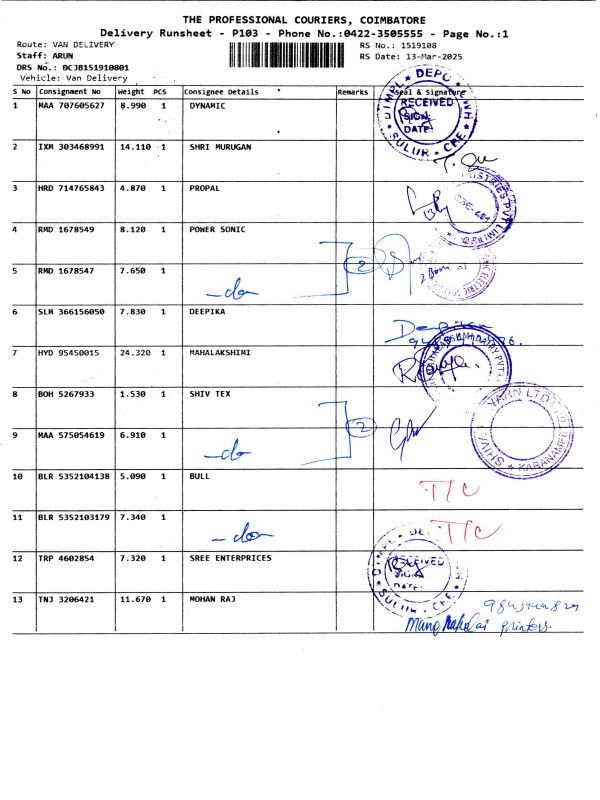 THE PROFESSIONAL COURIERS, COIMBATORE
Delivery Runsheet - P103 - Phone No.:0422-3505555 - Page No.:1
Route: VAN DELIVERY RS No.: 1519108
Staff: ARUN RS Date: 13-Mar-2025
DRS No.: BCJB151910801
Vehicle: Van Delivery
S No Consignment No Weight PCS Consignee Details Remarks Seal & Signature
1 MAA 707605627 8.990 1 DYNAMIC
DIMPL DEPO
RECEIVED
SIGN:
DATE:
SULUR - CBE
2 IXM 303468991 14.110 1 SHRI MURUGAN
3 HRD 714765843 4.870 1 PROPAL
4 RMD 1678549 8.120 1 POWER SONIC
2
5 RMD 1678547 7.650 1 -do-
6 SLM 366156050 7.830 1 DEEPIKA
7 HYD 95450015 24.320 1 MAHALAKSHIMI
8 BOH 5267933 1.530 1 SHIV TEX
2
YARN LTD
SHIVA
KARANAMPE
9 MAA 575054619 6.910 1 -do-
10 BLR 5352104138 5.090 1 BULL T/C
11 BLR 5352103179 7.340 1 -do- T/C
12 TRP 4602854 7.320 1 SREE ENTERPRICES
RECEIVED
SIGN:
DATE:
SULUR - CBE
13 TNJ 3206421 11.670 1 MOHAN RAJ
printers.